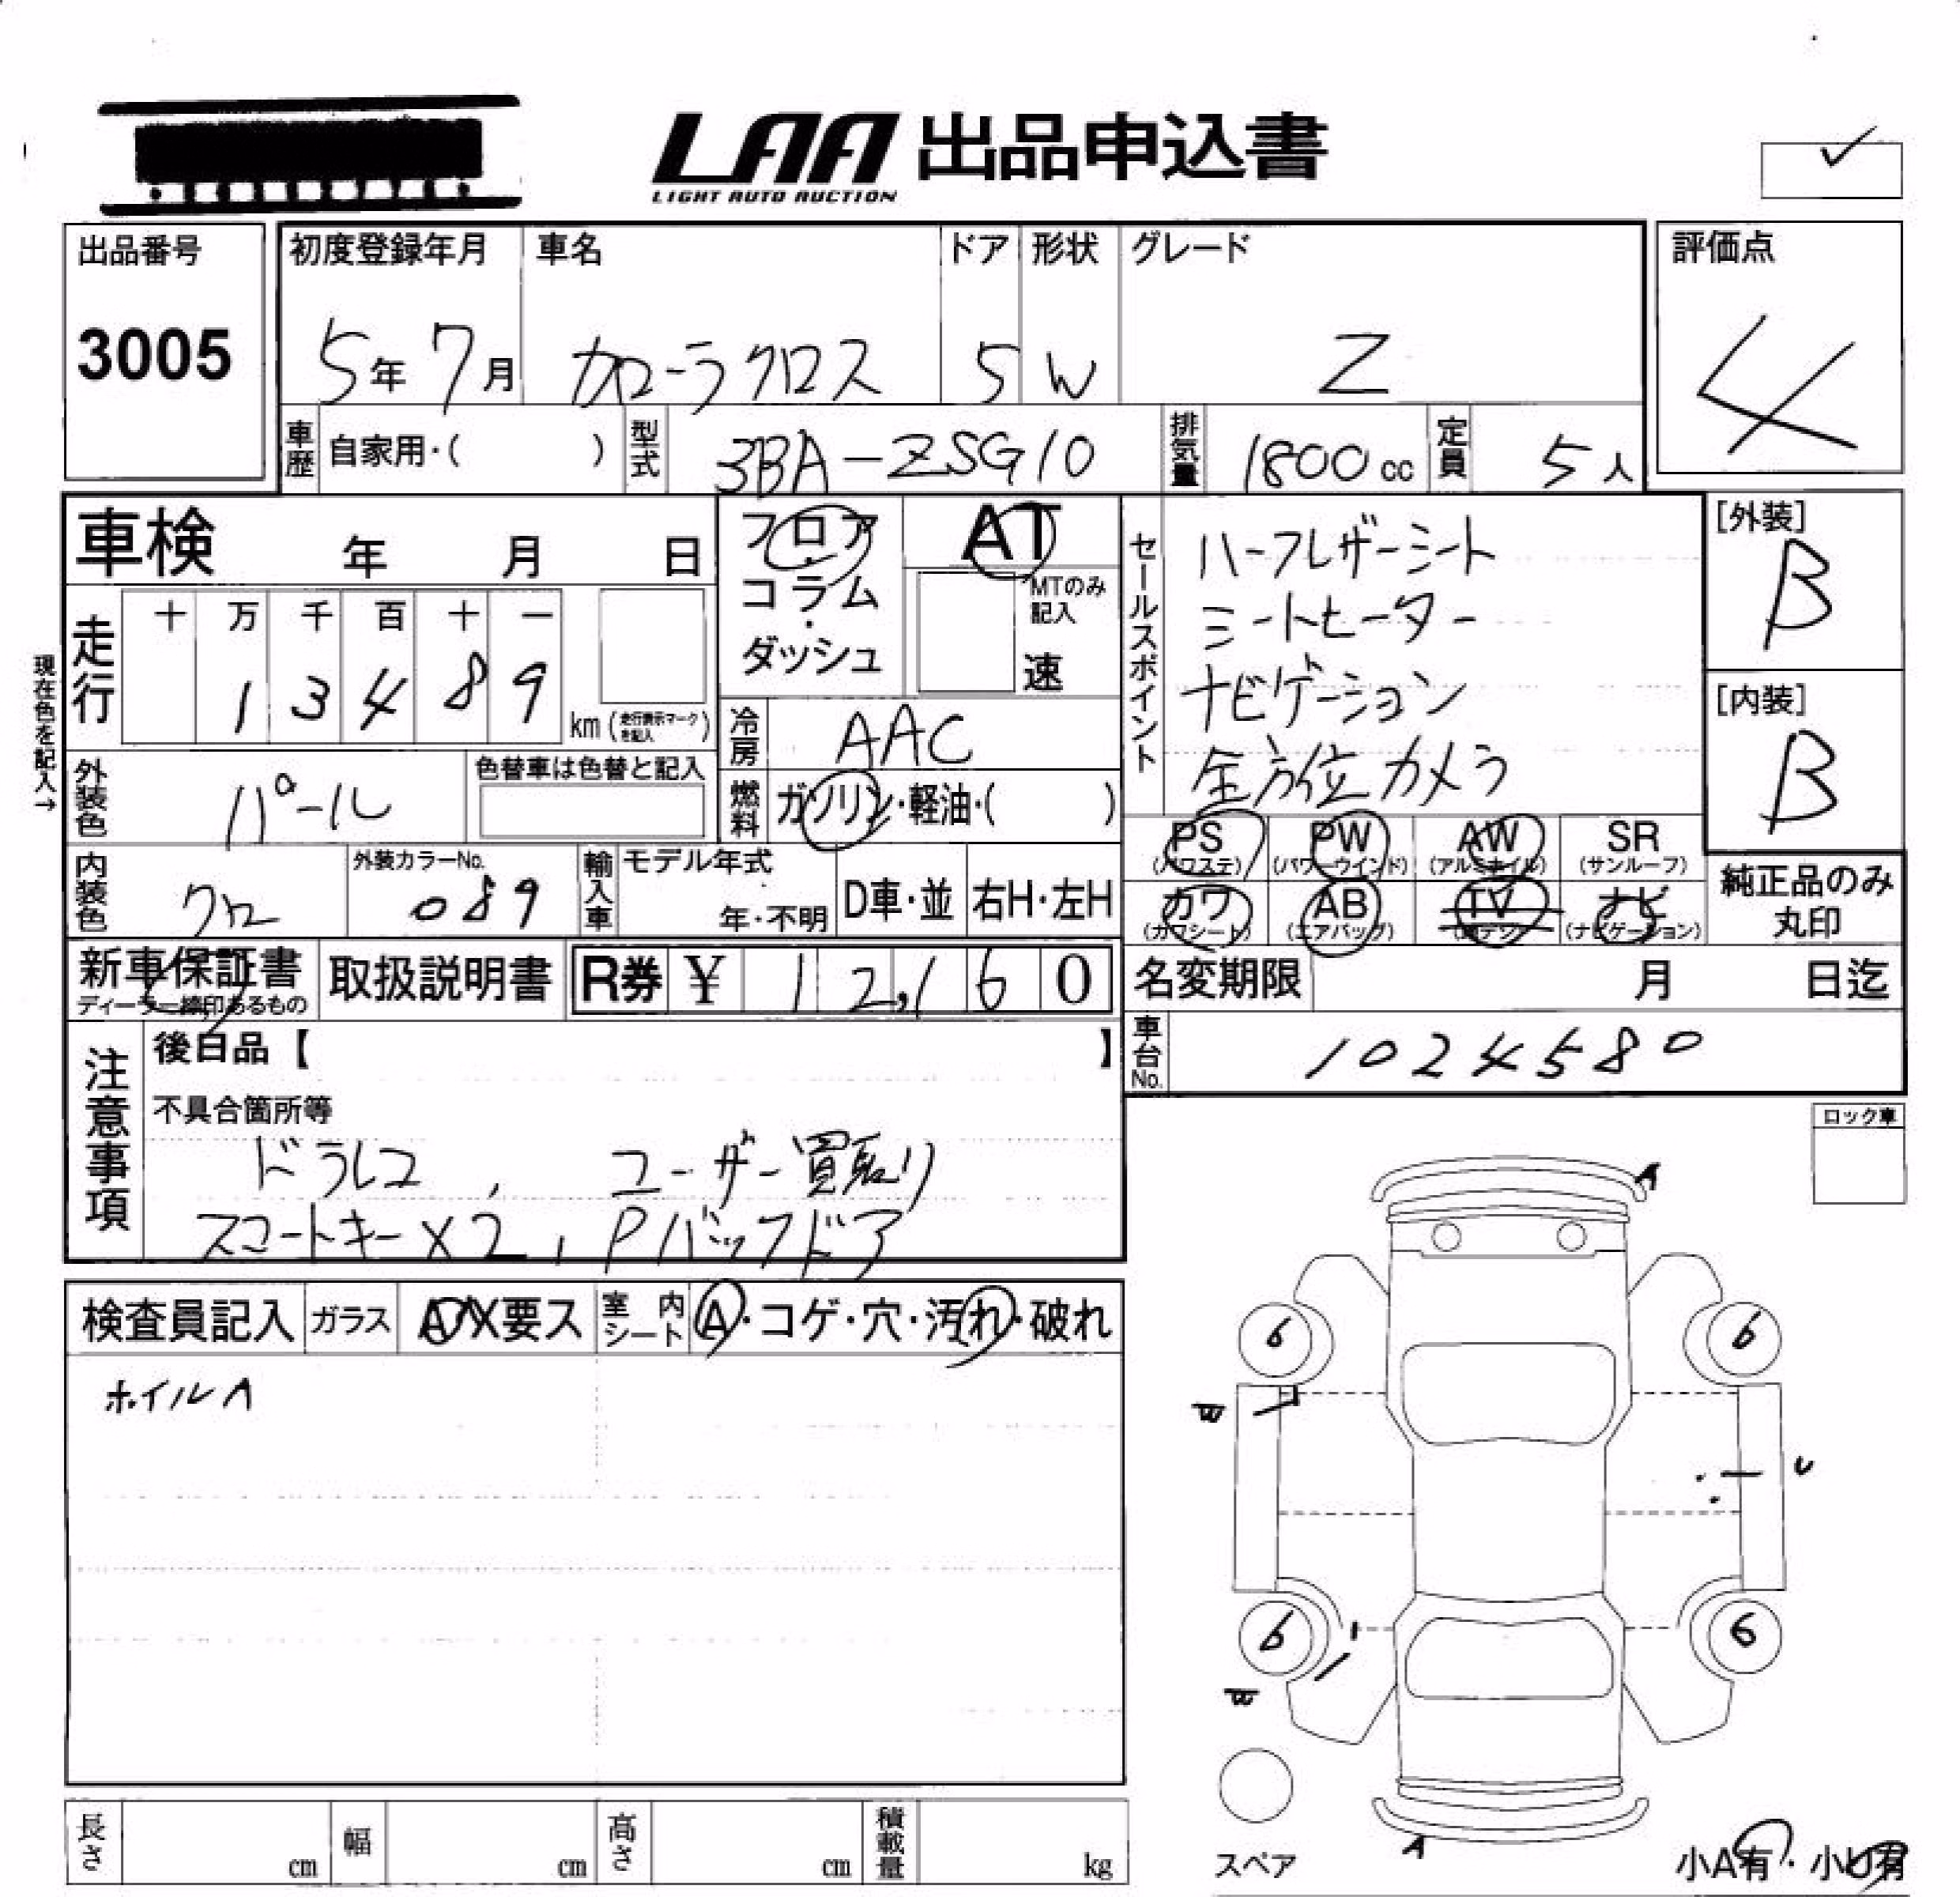 LAA 出品申込書
LIGHT AUTO AUCTION
出品番号
3005
初度登録年月 車名 ドア 形状 グレード 評価点
5年 7月 カローラクロス 5 W Z 4
車歴 自家用・( ) 型式 3BA-ZSG10 排気量 1800cc 定員 5人
車検 年 月 日
フロア・コラム・ダッシュ
AT
MTのみ記入
速
現在色を記入→
走行 十 万 千 百 十 一
1 3 4 8 9 km (走行表示マークを記入)
冷房 AAC
外装色 パール
色替車は色替と記入
燃料 ガソリン・軽油・( )
内装色 クロ
外装カラーNo. 089
輸入車 モデル年式 年・不明 D車・並 右H・左H
セールスポイント
ハーフレザーシート
シートヒーター
ナビゲーション
全方位カメラ
[外装] B
[内装] B
PS (パワステ) PW (パワーウインド) AW (アルミホイル) SR (サンルーフ)
カワ (カワシート) AB (エアバッグ) TV ナビ (ナビゲーション)
純正品のみ丸印
新車保証書
ディーラー捺印あるもの
取扱説明書 R券 ¥ 12,160
名変期限 月 日迄
車台No. 1024580
注意事項
後日品【 】
不具合箇所等
ドラレコ, ユーザー買取り
スマートキー×2, Pバックドア
ロック車
検査員記入 ガラス A・X要ス 室内シート A・コゲ・穴・汚れ・破れ
ホイルA
A
6 6
W
U
6 6
W
A
スペア
小A有・小U有
長さ cm 幅 cm 高さ cm 積載量 kg